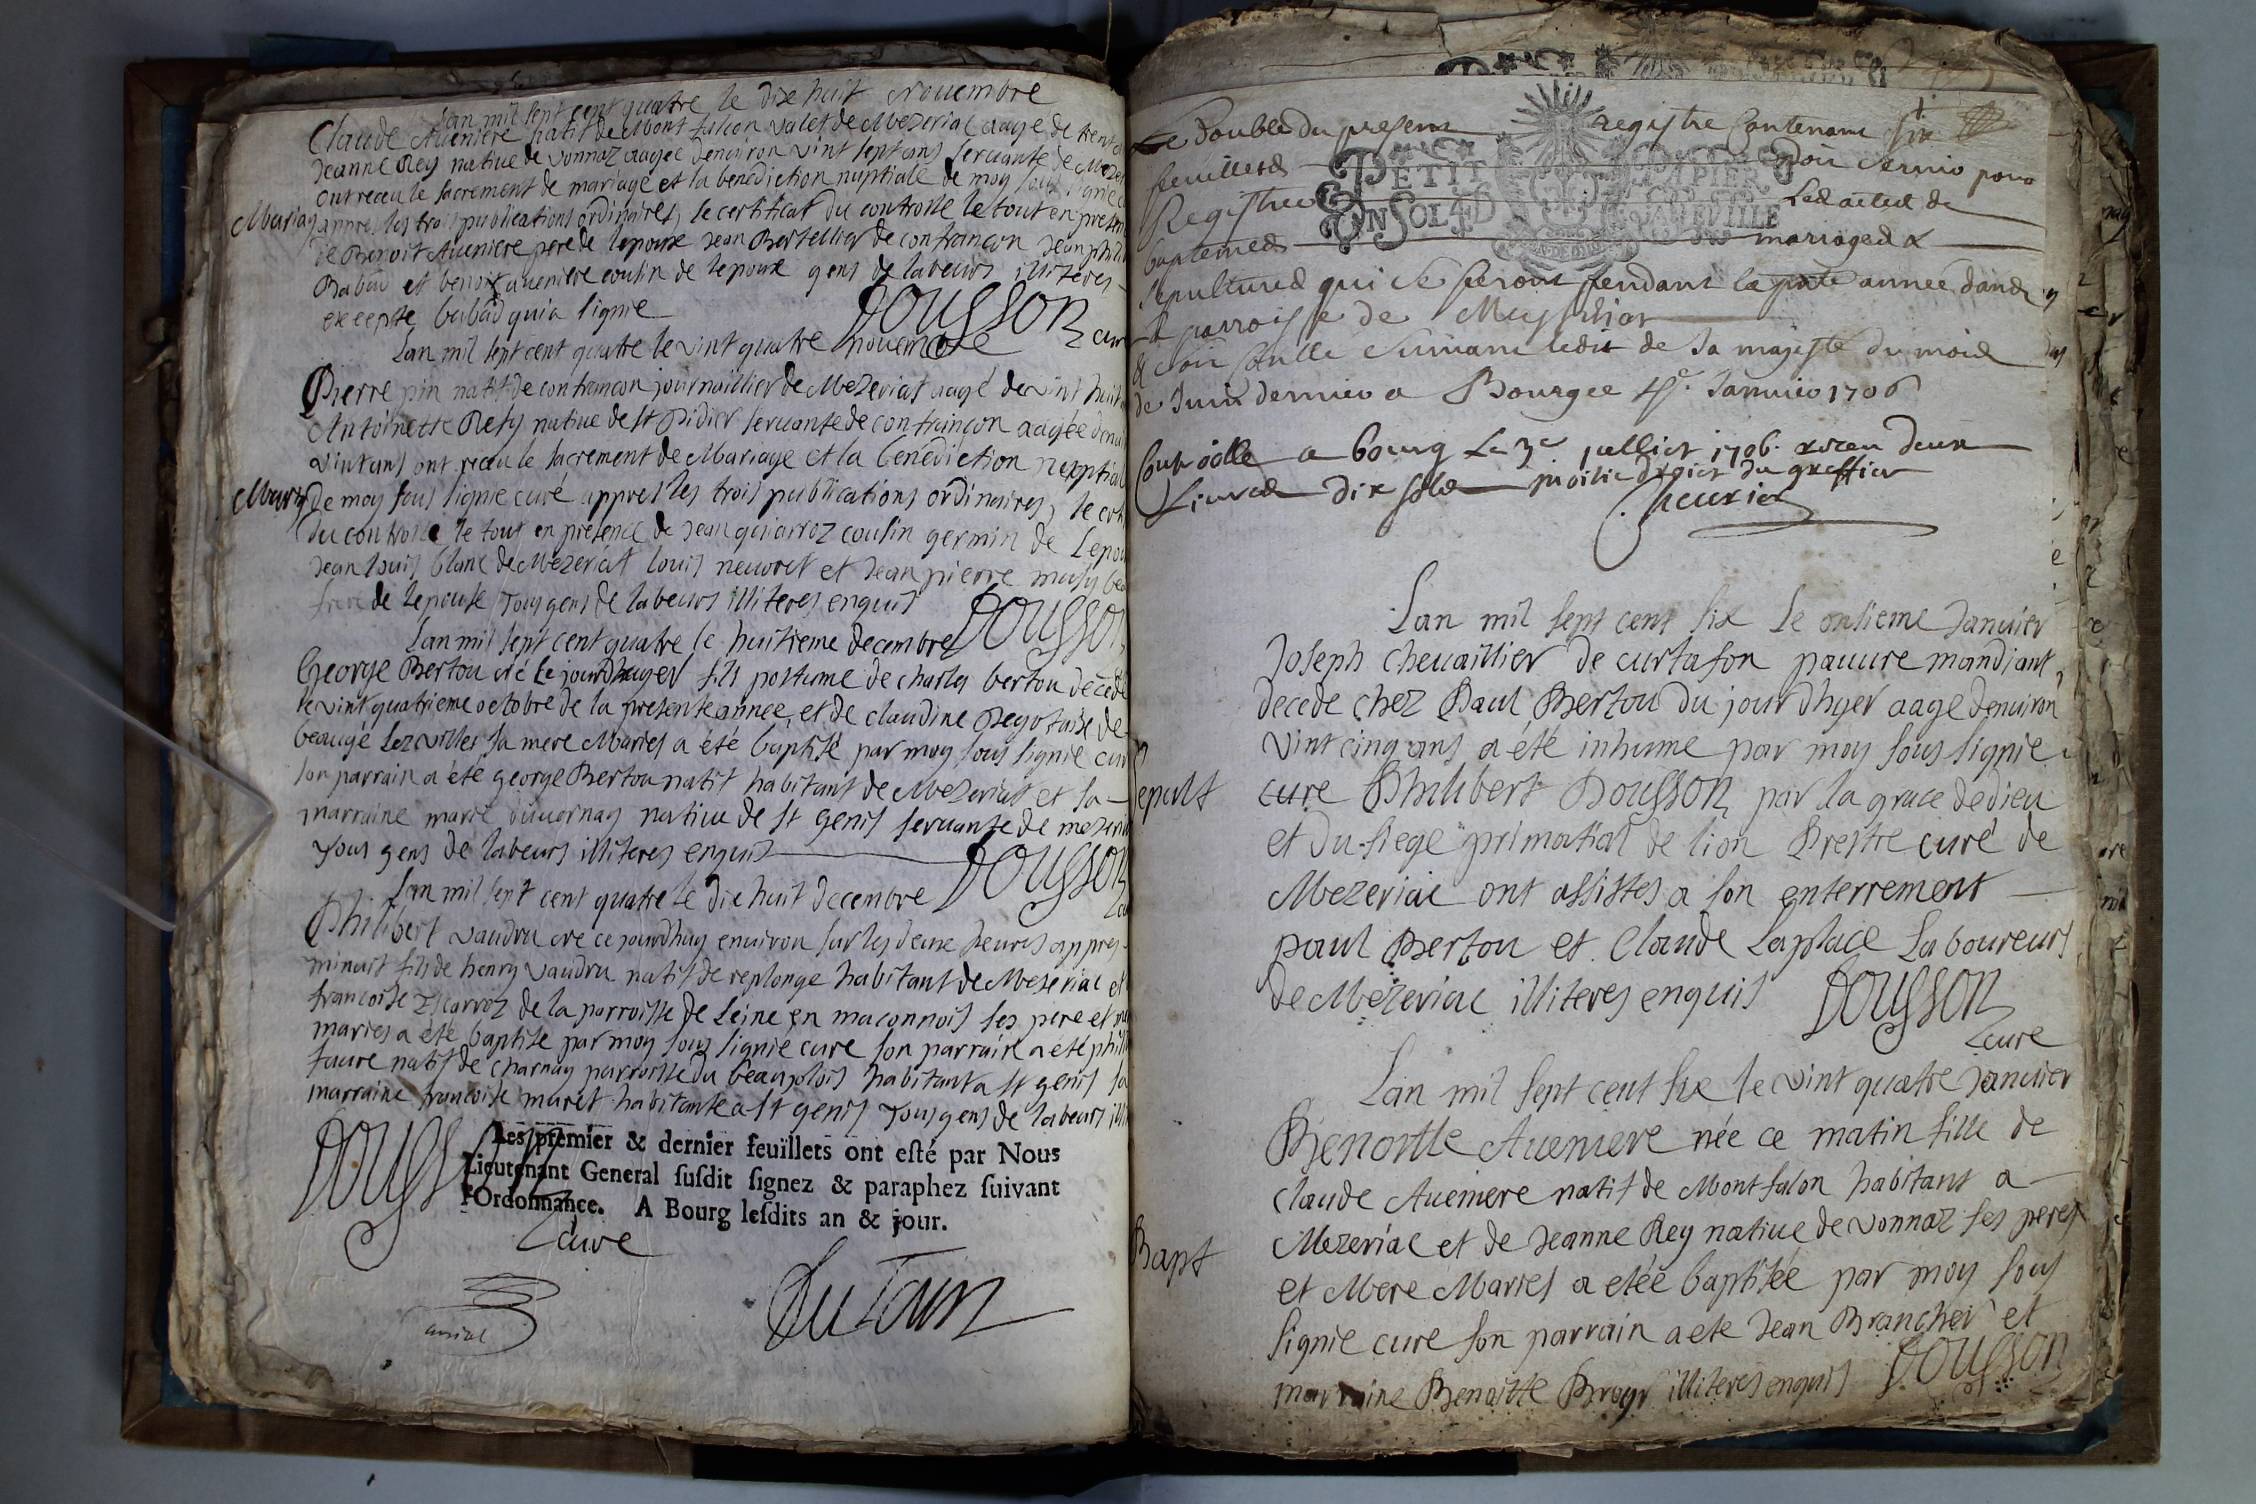 Lan mil sept cent quatre le dix huit Novembre
Claude Aueniere natif de Mont falcon valet de Mezeriac aage de trent
Jeanne Rey natiue de vonnaz aagee denuiron vint sept ans seruante de Mezer
ont receu le sacrement de mariage et la benediction nuptiale de moy sous signe
Mariag
appres les trois publications ordinaires, le certificat du controlle le tout en presen
de Benoit Aueniere pere de lepoux Jean Bertellier de confrancon Jean phili
Babad et benoit aueniere cousin de lepoux gens de labeurs illiteres
excepte babad qui a signie
DOUSSON cur
Lan mil sept cent quatre le vint quatre nouembre
Pierre pin natif de confrancon journaillier de Mezeriat aagé de vint huit
Antoinette Resy natiue de st Didier seruante de confrancon aagée denui
vint ans ont receu le sacrement de Mariage et la benediction nuptial
Mariag
de moy sous signie curé appres les trois publications ordinaires, le certi
du controlle le tout en presence de Jean quiarroz cousin germin de Lepou
Jean louis blanc de Mezeriat louis neuoret et Jean pierre musy bea
frere de lepouse Tous gens de labeurs illiteres enquis DOUSSON
Lan mil sept cent quatre le huitieme decembre
George Bertou né le jourdhuyer fils postume de charles bertou decede
le vint quatrieme octobre de la presente annee, et de claudine
beauge ses villes sa mere Maries a été baptisé par moy sous signie cur
son parrain a été george Bertou natif habitant de Mezeriat et sa
marraine marie duuernay natiue de st genis seruante de mezeri
Tous gens de labeurs illiteres enquis DOUSSON
Lan mil sept cent quatre le dix huit decembre
Philibert vaudru né ce jourdhuy enuiron sur les deux heures appres
minuit fils de henry vaudru natif de replonge habitant de Mezeriac et
francoise de la parroisse de Leine en maconnois ses pere et me
maries a été baptise par moy sous signie cure son parrain a été phili
faure natif de charnay parroisse du beaujolois habitant a st genis sa
marraine francoise muret habitante a st genis Tous gens de labeurs ill
DOUSSON
Les premier & dernier feuillets ont esté par Nous
Lieutenant General susdit signez & paraphez suivant
l'Ordonnance. A Bourg lesdits an & jour.
Cure
Le double du present registre Contenant six
feuilles doit seruir pour
PETIT PAPIER
Registrer Les actes de
UN SOL 4 D
baptemes mariages &
sepultures qui se feront pendant la pnte année dans
la parroisse de
suiuant ledit de sa majeste du mois
de Juin dernier a Bourg ce Januier 1706
Controlle a bourg Le 3e juillier 1706. receu deux
Liures dix sols moitie du greffier
Lan mil sept cent six Le onsieme Januier
Joseph cheuaillier de curtafon pauure mandiant,
decede chez Paul Bertou du jour dhyer aage denuiron
vint cinq ans a été inhume par moy sous signie
Sepult
cure Philibert Dousson par la grace de dieu
et du siege primatial de lion Prestre curé de
Mezeriac ont assistes a son enterrement
paul Bertou et Claude Laplace Laboureurs
de Mezeriac illiteres enquis DOUSSON
Cure
Lan mil sept cent six le vint quatre Januier
Benoitte Aueniere née ce matin fille de
claude Aueniere natif de Mont falon habitant a
Bapt
Mezeriac et de Jeanne Rey natiue de vonnaz ses peres
et Mere Maries a etée baptisée par moy sous
signie cure son parrain a ete Jean Brancher et
marraine Benoitte illiteres enquis DOUSSON